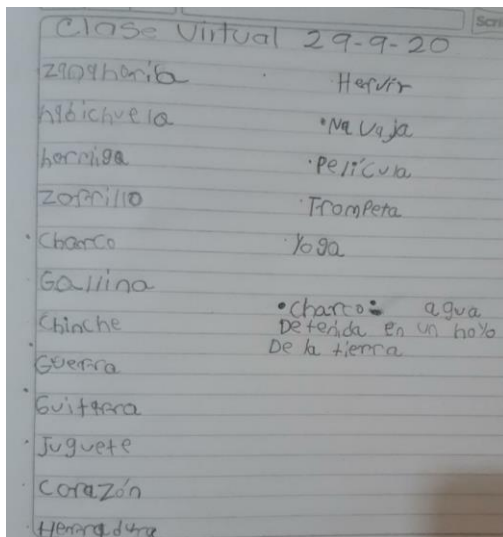 Clase Virtual 29-9-20
zanahoria
habichuela
hormiga
zorrillo
Charco
Gallina
Chinche
Guerra
Guitarra
Juguete
Corazón
Herradura
Hervir
Navaja
Película
Trompeta
Yoga
Charco: agua
Detenida en un hoyo
De la tierra